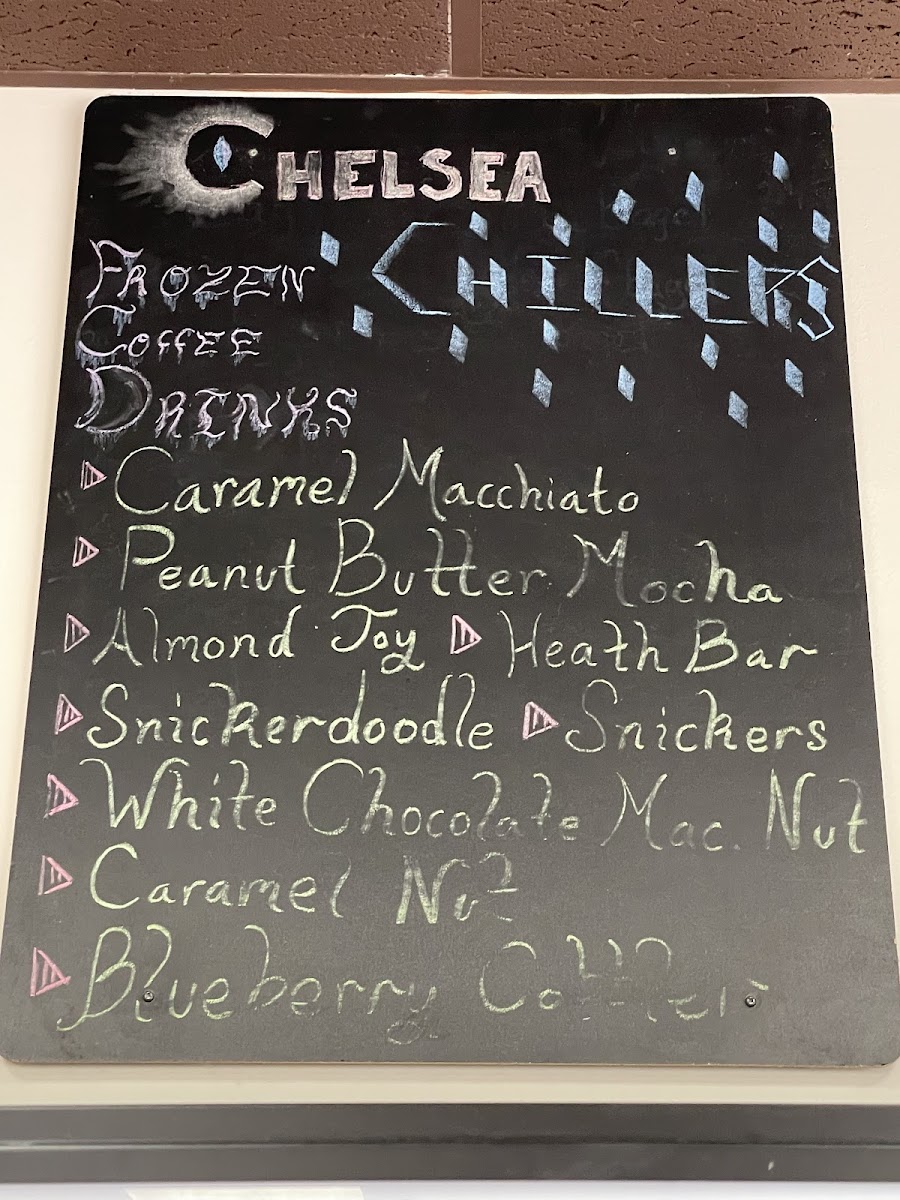 CHELSEA
CHILLERS
FROZEN
COFFEE
DRINKS
Caramel Macchiato
Peanut Butter Mocha
Almond Joy Heath Bar
Snickerdoodle Snickers
White Chocolate Mac. Nut
Caramel Nut
Blueberry Cobbler